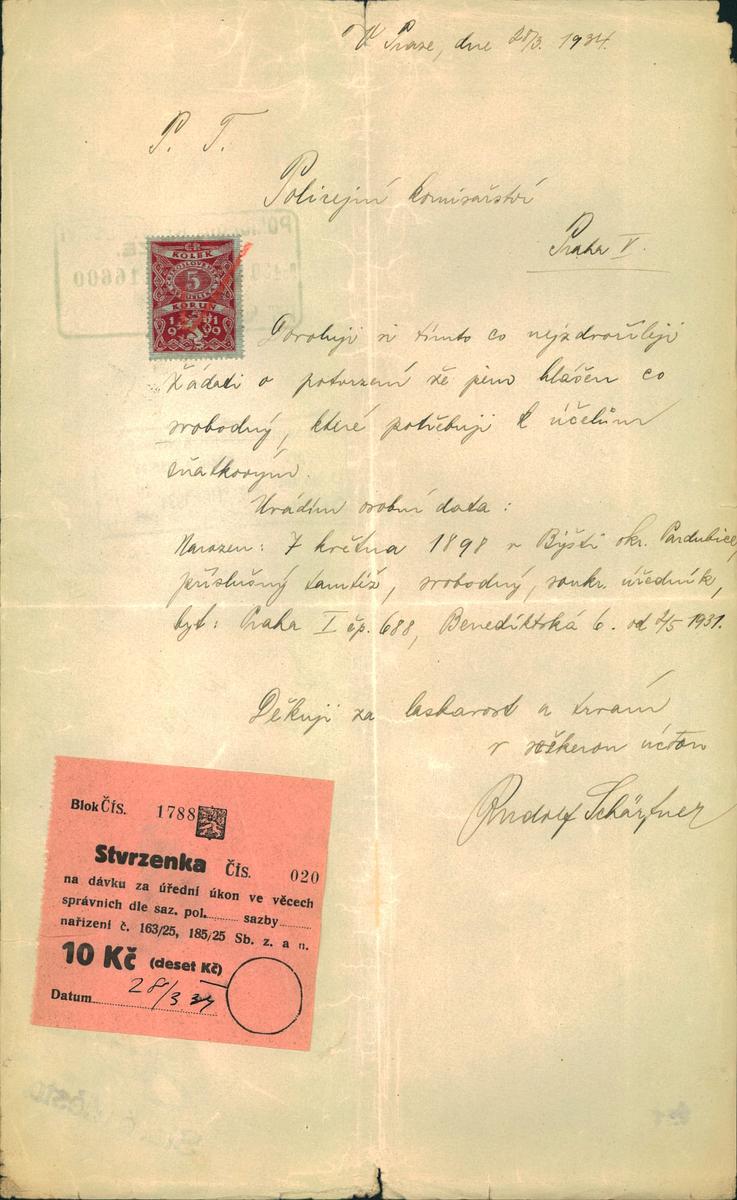 V Praze, dne 28/3. 1934.
P. T.
Policejní komisařství
Praha V.
ČP.
KOLEK
5
KORUN
Dovoluji si tímto co nejzdvořileji
žádati o potvrzení že jsem hlášen co
svobodný, které potřebuji k účelům
sňatkovým.
Uvádím osobní data:
Narozen: 7 května 1898 v Býšti okr. Pardubice,
příslušný tamtéž, svobodný, soukr. úředník,
byt: Praha I čp. 688, Benediktská 6. od 2/5 1931.
Děkuji za laskavost a trvám
v veškerou úctou
Rudolf Schärfner
Blok ČÍS. 1788
Stvrzenka ČÍS. 020
na dávku za úřední úkon ve věcech
správních dle saz. pol........ sazby........
nařízení č. 163/25, 185/25 Sb. z. a n.
10 Kč (deset Kč)
Datum 28/3 34
16600